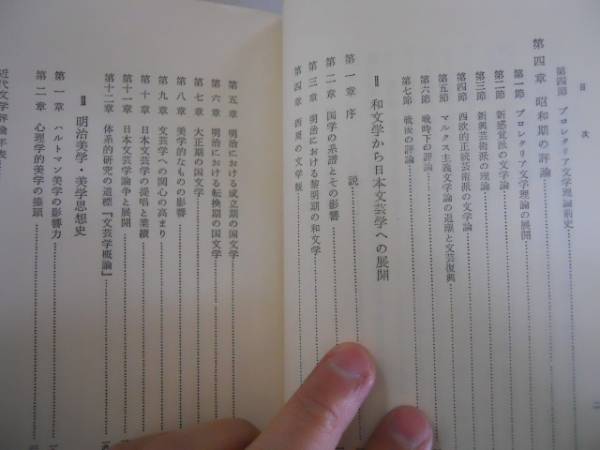 目次
第四節 プロレタリア文学理論前史
第四章 昭和期の評論
第一節 プロレタリア文学理論の展開
第二節 新感覚派の文学論
第三節 新興芸術派の理論
第四節 西欧的正統芸術派の文学論
第五節 マルクス主義文学論の退潮と文芸復興
第六節 戦時下の評論
第七節 戦後の評論
Ⅱ 和文学から日本文芸学への展開
第一章 序説
第二章 国学の系譜とその影響
第三章 明治における黎明期の和文学
第四章 西周の文学観
第五章 明治における成立期の国文学
第六章 明治における転換期の国文学
第七章 大正期の国文学
第八章 美学的なものの影響
第九章 文芸学への関心の高まり
第十章 日本文芸学の提唱と業績
第十一章 日本文芸学論争と展開
第十二章 体系的研究の道標『文芸学概論』
Ⅲ 明治美学・美学思想史
第一章 ハルトマン美学の影響力
第二章 心理学的美学の擡頭
近代文学評論年表